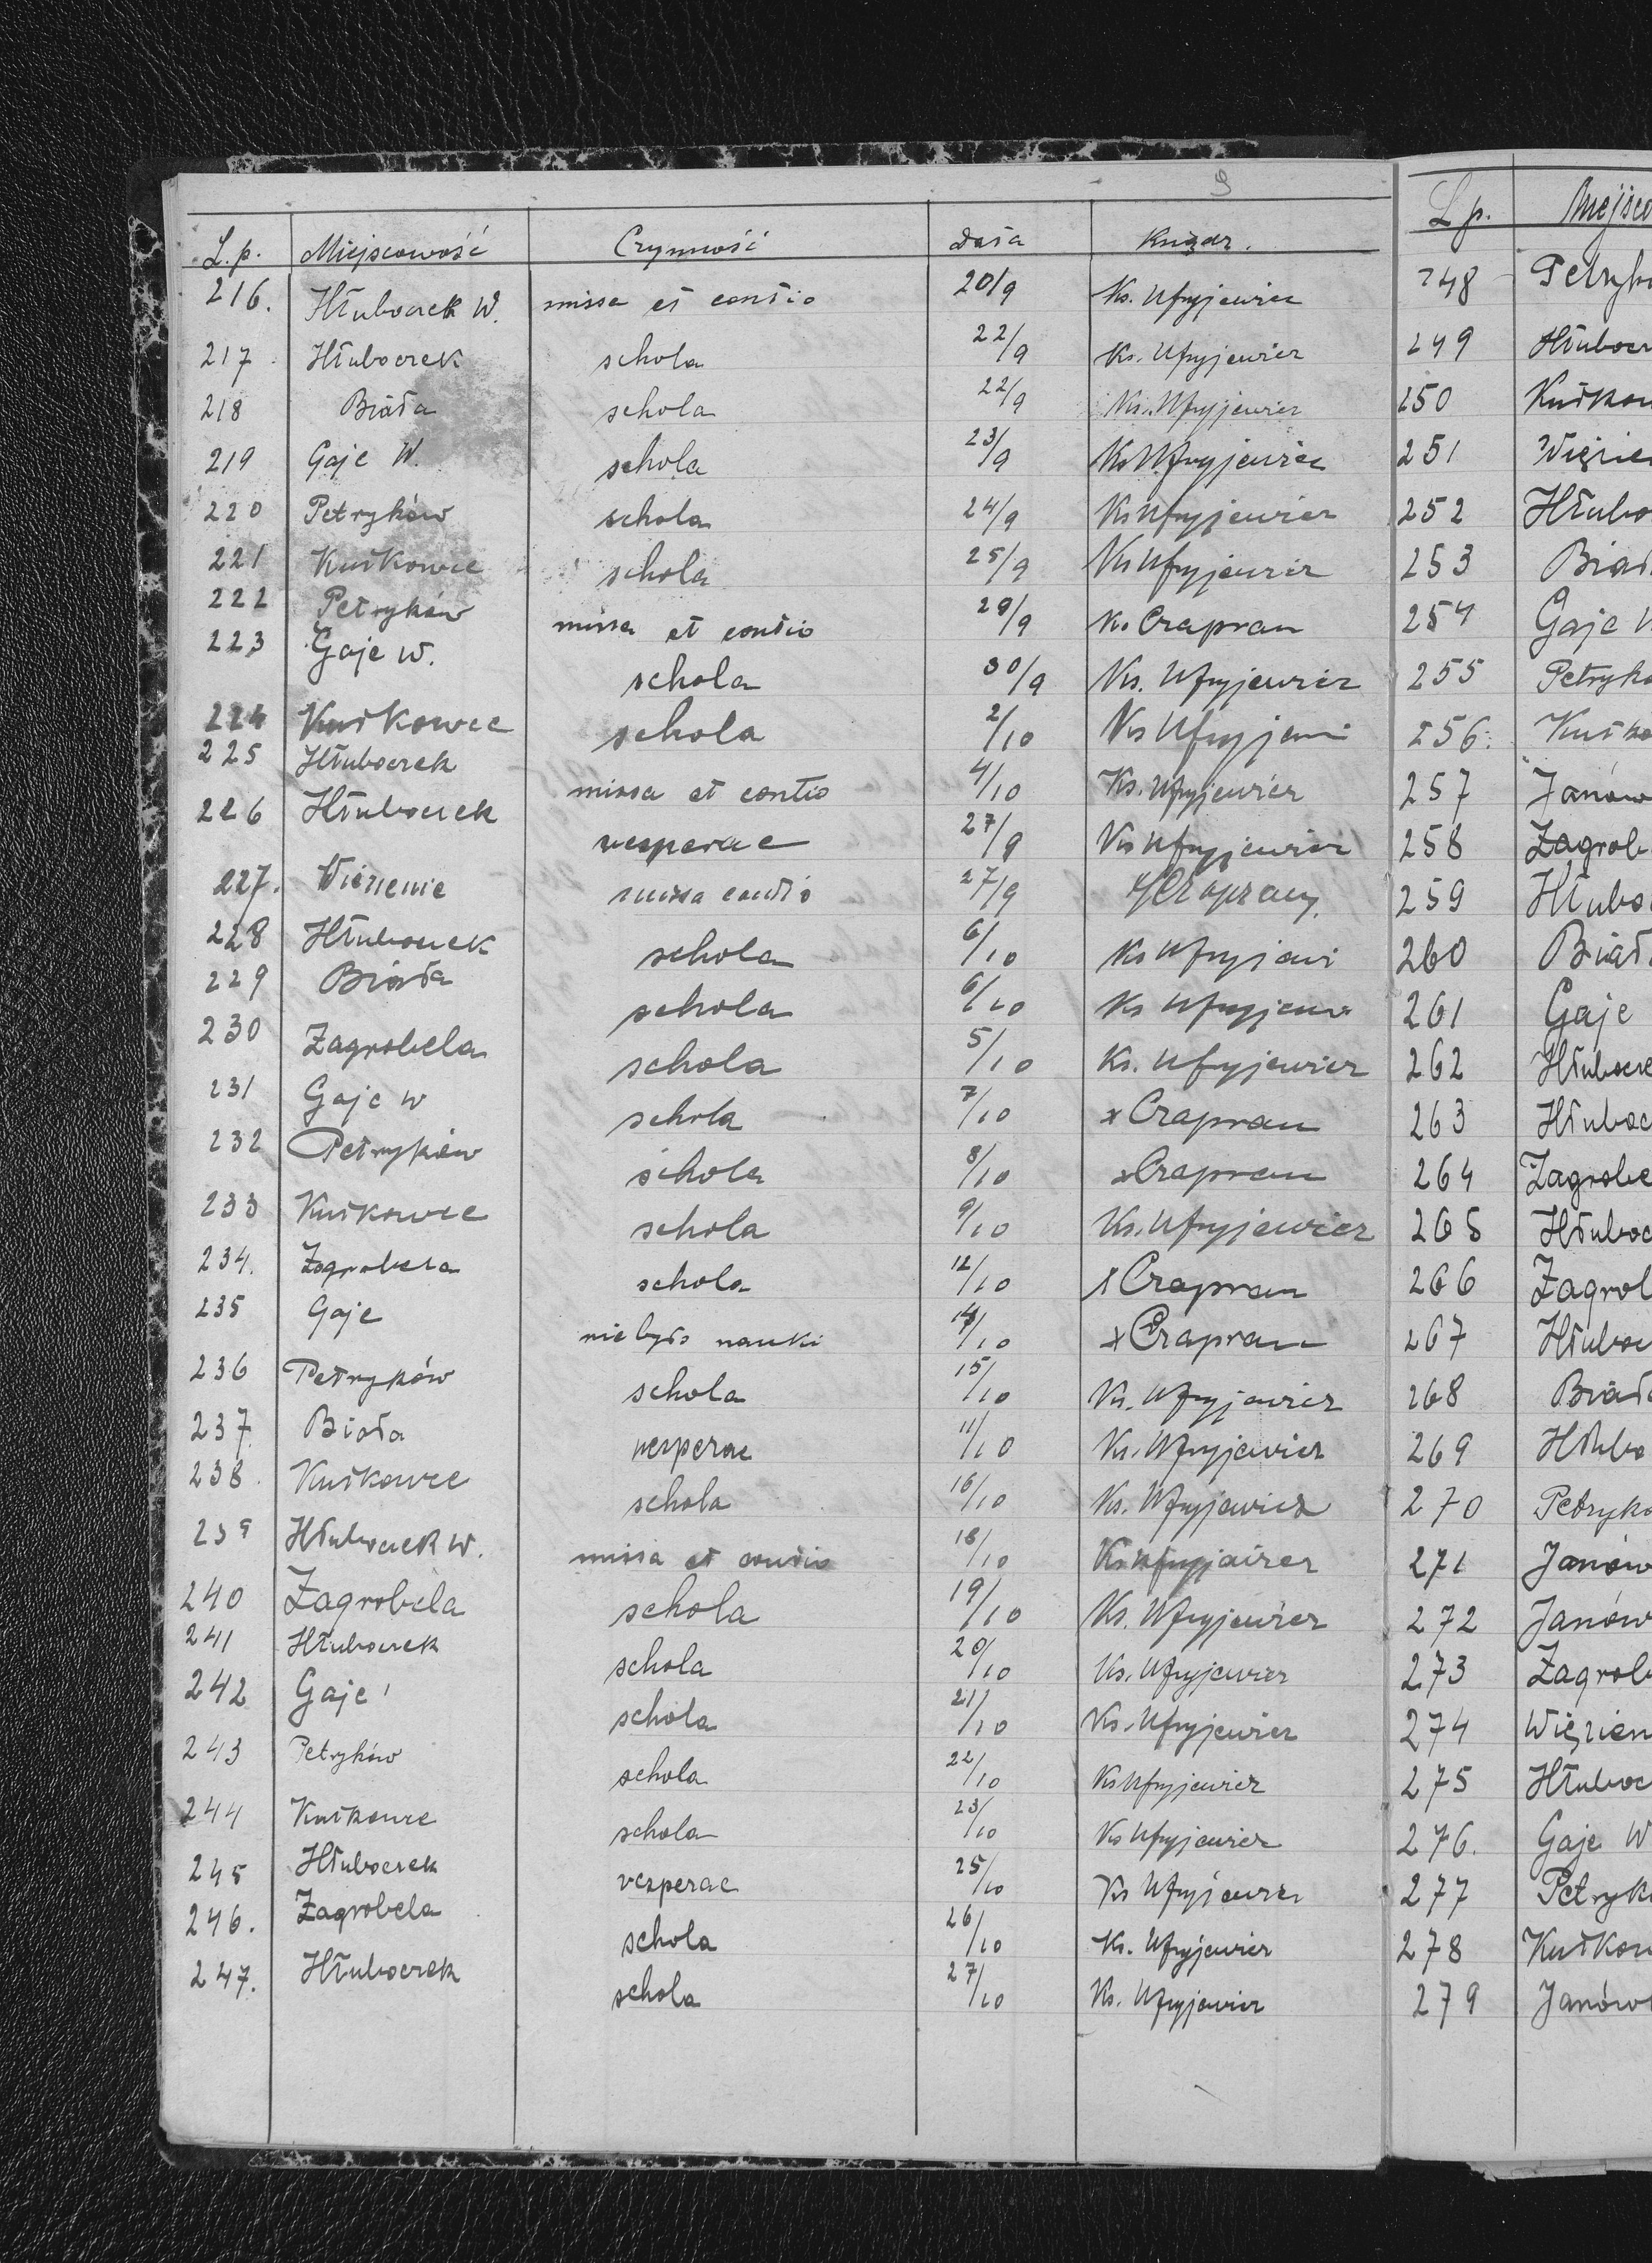 9
L.p. Miejscowość Czynność Data Kniądz.
216. Hłuboczek W. missa et contio 20/9 Ks. Ufryjewicz
217. Hłuboczek schola 22/9 Ks. Ufryjewicz
218 Biała schola 22/9 Ks. Ufryjewicz
219 Gaje W. schola 23/9 Ks Ufryjewicz
220 Petryków schola 24/9 Ks Ufryjewicz
221 Kutkowce schola 25/9 Ks Ufryjewicz
222 Petryków missa et contio 29/9 Ks Czapran
223 Gaje W. schola 30/9 Ks. Ufryjewicz
224 Kutkowce schola 2/10 Ks Ufryjewi
225 Hłuboczek missa et contio 4/10 Ks. Ufryjewicz
226 Hłuboczek vesperae 27/9 Ks Ufryjewicz
227. Więzienie missa contio 27/9 x Czapran
228 Hłuboczek schola 6/10 Ks Ufryjewi
229 Biała schola 6/10 Ks Ufryjew
230 Zagrobela schola 5/10 Ks. Ufryjewicz
231 Gaje W schola 7/10 x Czapran
232 Petryków schola 8/10 x Czapran
233 Kutkowce schola 9/10 Ks. Ufryjewicz
234. Zagrobela schola 12/10 x Czapran
235 Gaje nie było nauki 14/10 x Czapran
236 Petryków schola 15/10 Ks. Ufryjewicz
237. Biała vesperae 11/10 Ks. Ufryjewicz
238. Kutkowce schola 16/10 Ks. Ufryjewicz
239 Hłuboczek W. missa et contio 18/10 Ks Ufryjewicz
240 Zagrobela schola 19/10 Ks. Ufryjewicz
241 Hłuboczek schola 20/10 Ks. Ufryjewicz
242 Gaje schola 21/10 Ks. Ufryjewicz
243 Petryków schola 22/10 Ks Ufryjewicz
244 Kutkowce schola 23/10 Ks Ufryjewicz
245 Hłuboczek vesperae 25/10 Ks Ufryjewicz
246. Zagrobela schola 26/10 Ks. Ufryjewicz
247. Hłuboczek schola 27/10 Ks. Ufryjewicz
L.p. Miejsco
248 Petryk
249 Hłubocz
250 Kutkow
251 Więzie
252 Hłubo
253 Biał
254 Gaje W
255 Petryko
256. Kutko
257 Janów
258 Zagrob
259 Hłubo
260 Biał
261 Gaje
262 Hłubocz
263 Hłuboc
264 Zagrobe
265 Hłuboc
266 Zagrob
267 Hłuboc
268 Biała
269 Hłubo
270 Petryko
271 Janów
272 Janów
273 Zagrob
274 Więzien
275 Hłuboc
276. Gaje W
277 Petryk
278 Kutkow
279 Janów